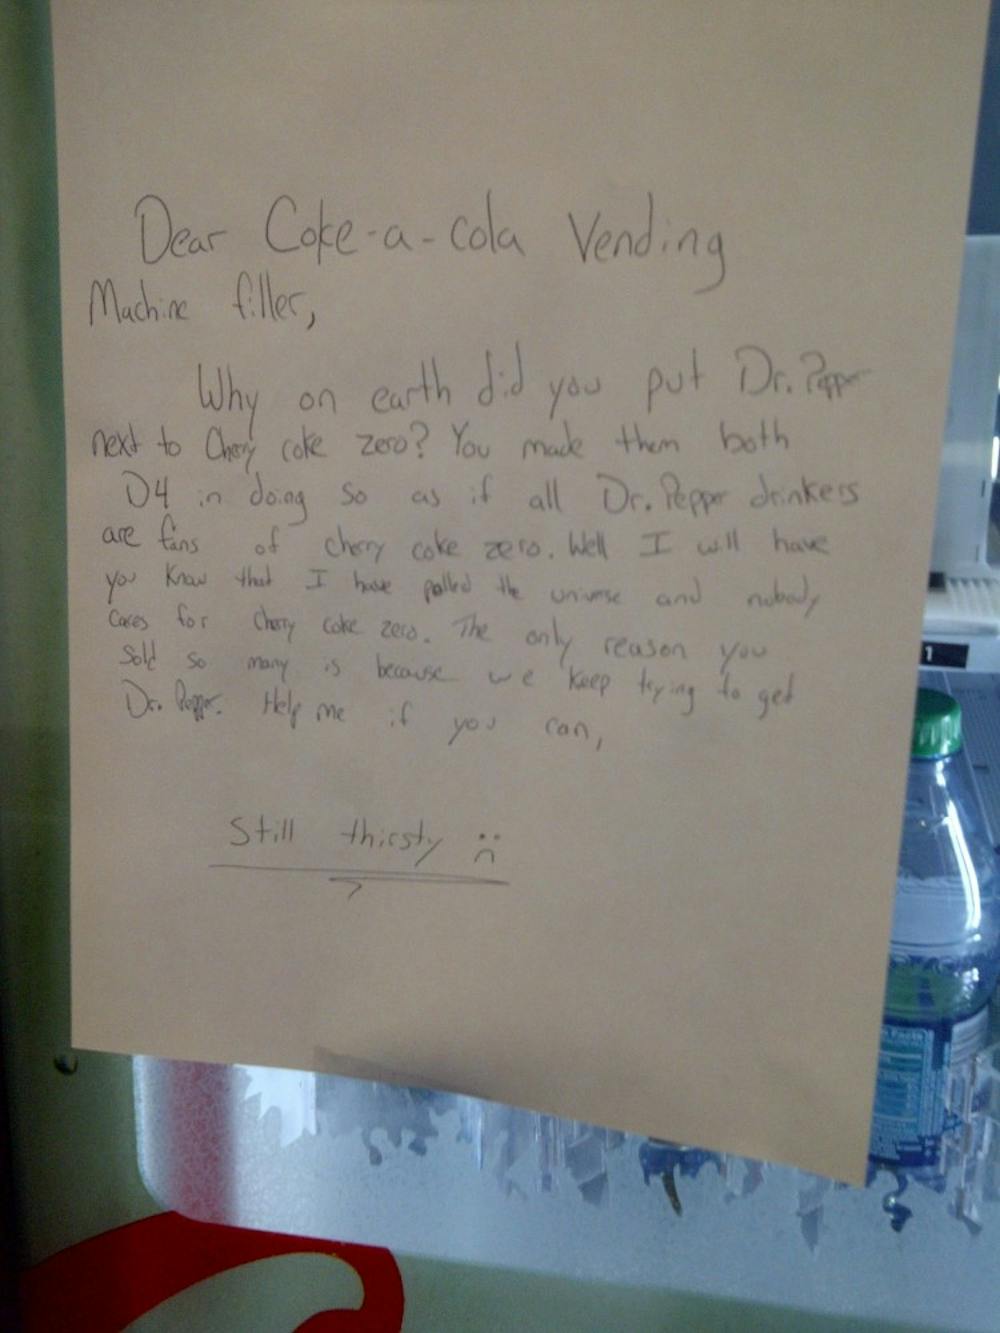 Dear Coke-a-cola Vending
Machine filler,
Why on earth did you put Dr. Pepper
next to Cherry coke zero? You made them both
D4 in doing so as if all Dr. Pepper drinkers
are fans of cherry coke zero. Well I will have
you know that I have polled the universe and nobody
cares for Cherry coke zero. The only reason you
sold so many is because we keep trying to get
Dr. Pepper. Help me if you can,
Still thirsty :(
1